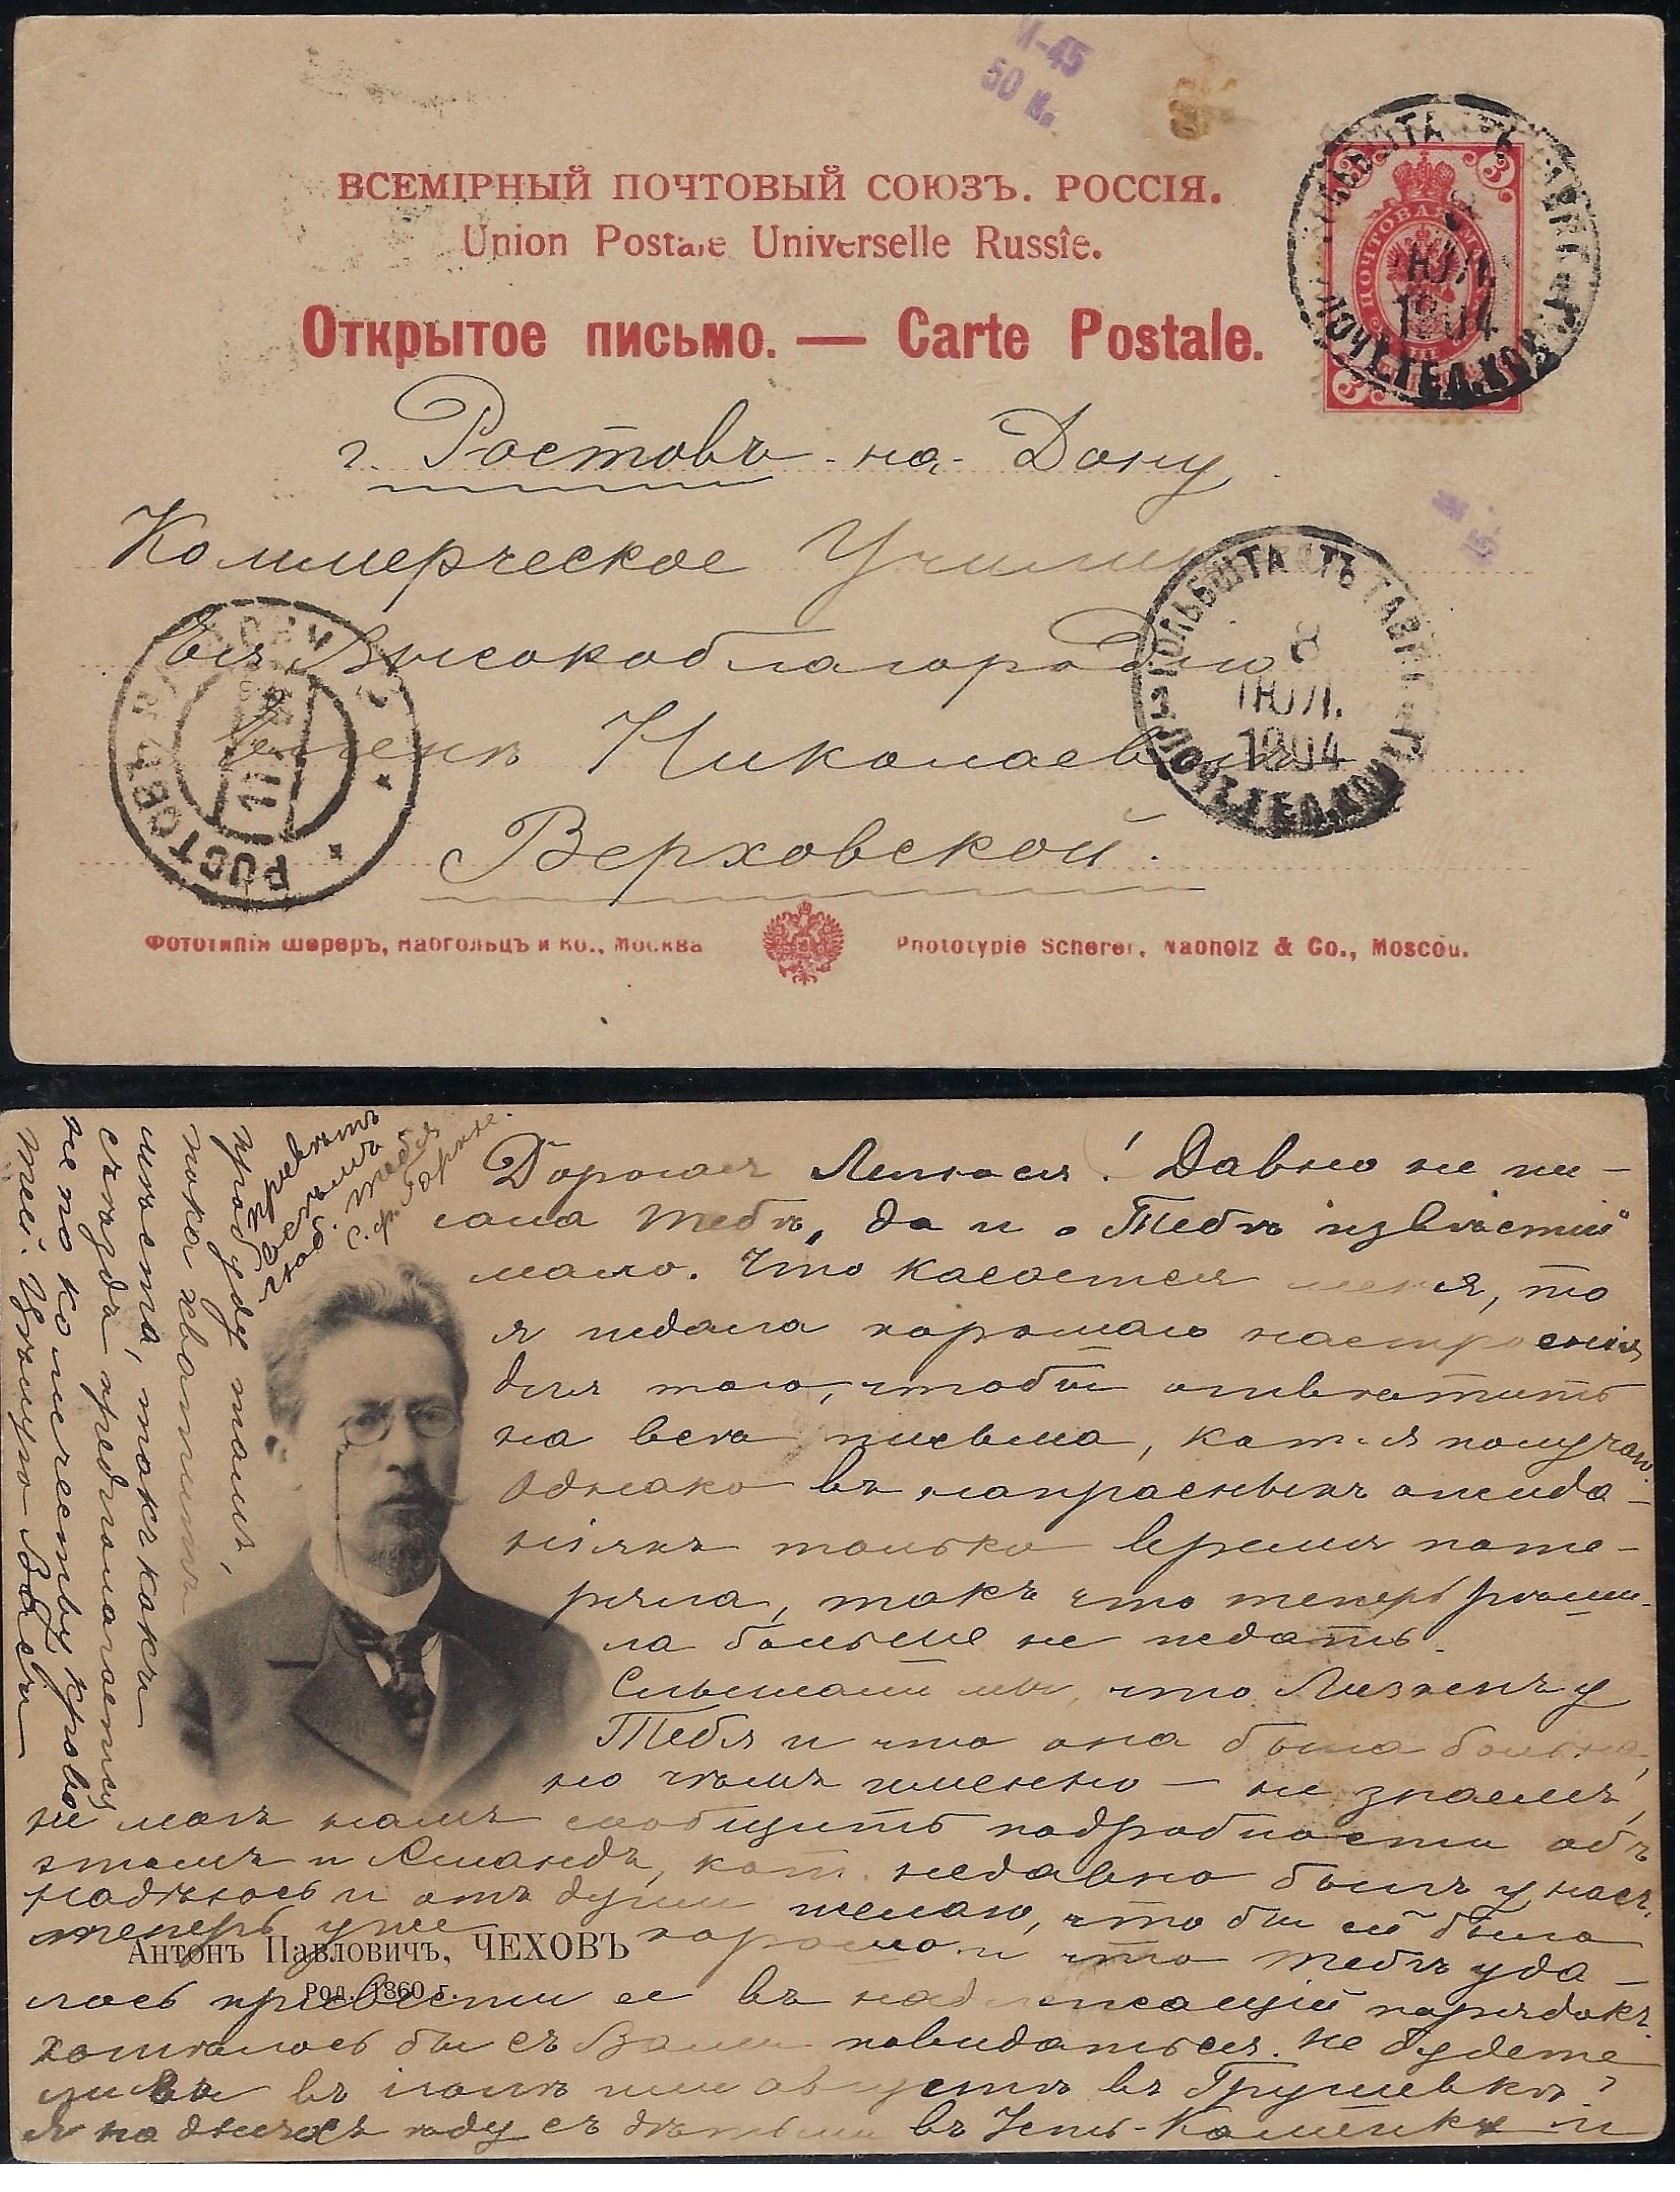 И-45
50 к.
ВСЕМІРНЫЙ ПОЧТОВЫЙ СОЮЗЪ. РОССІЯ.
Union Postale Universelle Russie.
Открытое письмо. — Carte Postale.
3 3
ПОЧТОВАЯ МАРКА
ІЮЛ.
1904
ПОЧ. ТЕЛ. КОН.
г. Ростовъ-на-Дону
Коммерческое Училище
Высокоблагородію
Николаевнѣ
Верховской.
ГОЛЬБШТАДТЪ ТАВР. Г.
8
ІЮЛ.
1904
ПОЧ. ТЕЛ. КОН.
РОСТОВЪ Н/Д
11
Фототипія Шереръ, Набгольцъ и Ко., Москва
Phototypie Scherer, Nabholz & Co., Moscou.
Дорогая Люся! Давно не пи-
сала Тебѣ, да и о Тебѣ извѣстій
мало. Что касается меня, то
я ждала хорошаго настроенія
для того, чтобы отвѣтить
на всѣ письма, кот. я получаю.
Однако въ напрасныхъ ожида-
ніяхъ только время поте-
ряла, такъ что теперь рѣши-
ла больше не ждать.
Слышали мы, что у
Тебя и что она была больна,
но чѣмъ именно — не знаемъ,
не могъ намъ сообщить подробности объ
этомъ и кот. недавно былъ у насъ.
Надѣюсь и отъ души желаю, что бы ей было
теперь уже хорошо и что Тебѣ уда-
лось привести ее въ надлежащій порядокъ.
Хотѣлось бы съ Вами повидаться. Не будете
ли Вы въ іюлѣ или августѣ въ Грушевкѣ?
Я на дняхъ ѣду съ дѣтьми въ и
Антонъ Павловичъ, ЧЕХОВЪ
Род. 1860 г.
пробуду тамъ,
пока хватитъ
мѣста, такъ какъ
съѣздъ предполагается
не по количеству
Цѣлую Васъ
привѣтъ
всѣмъ
люб. тебя